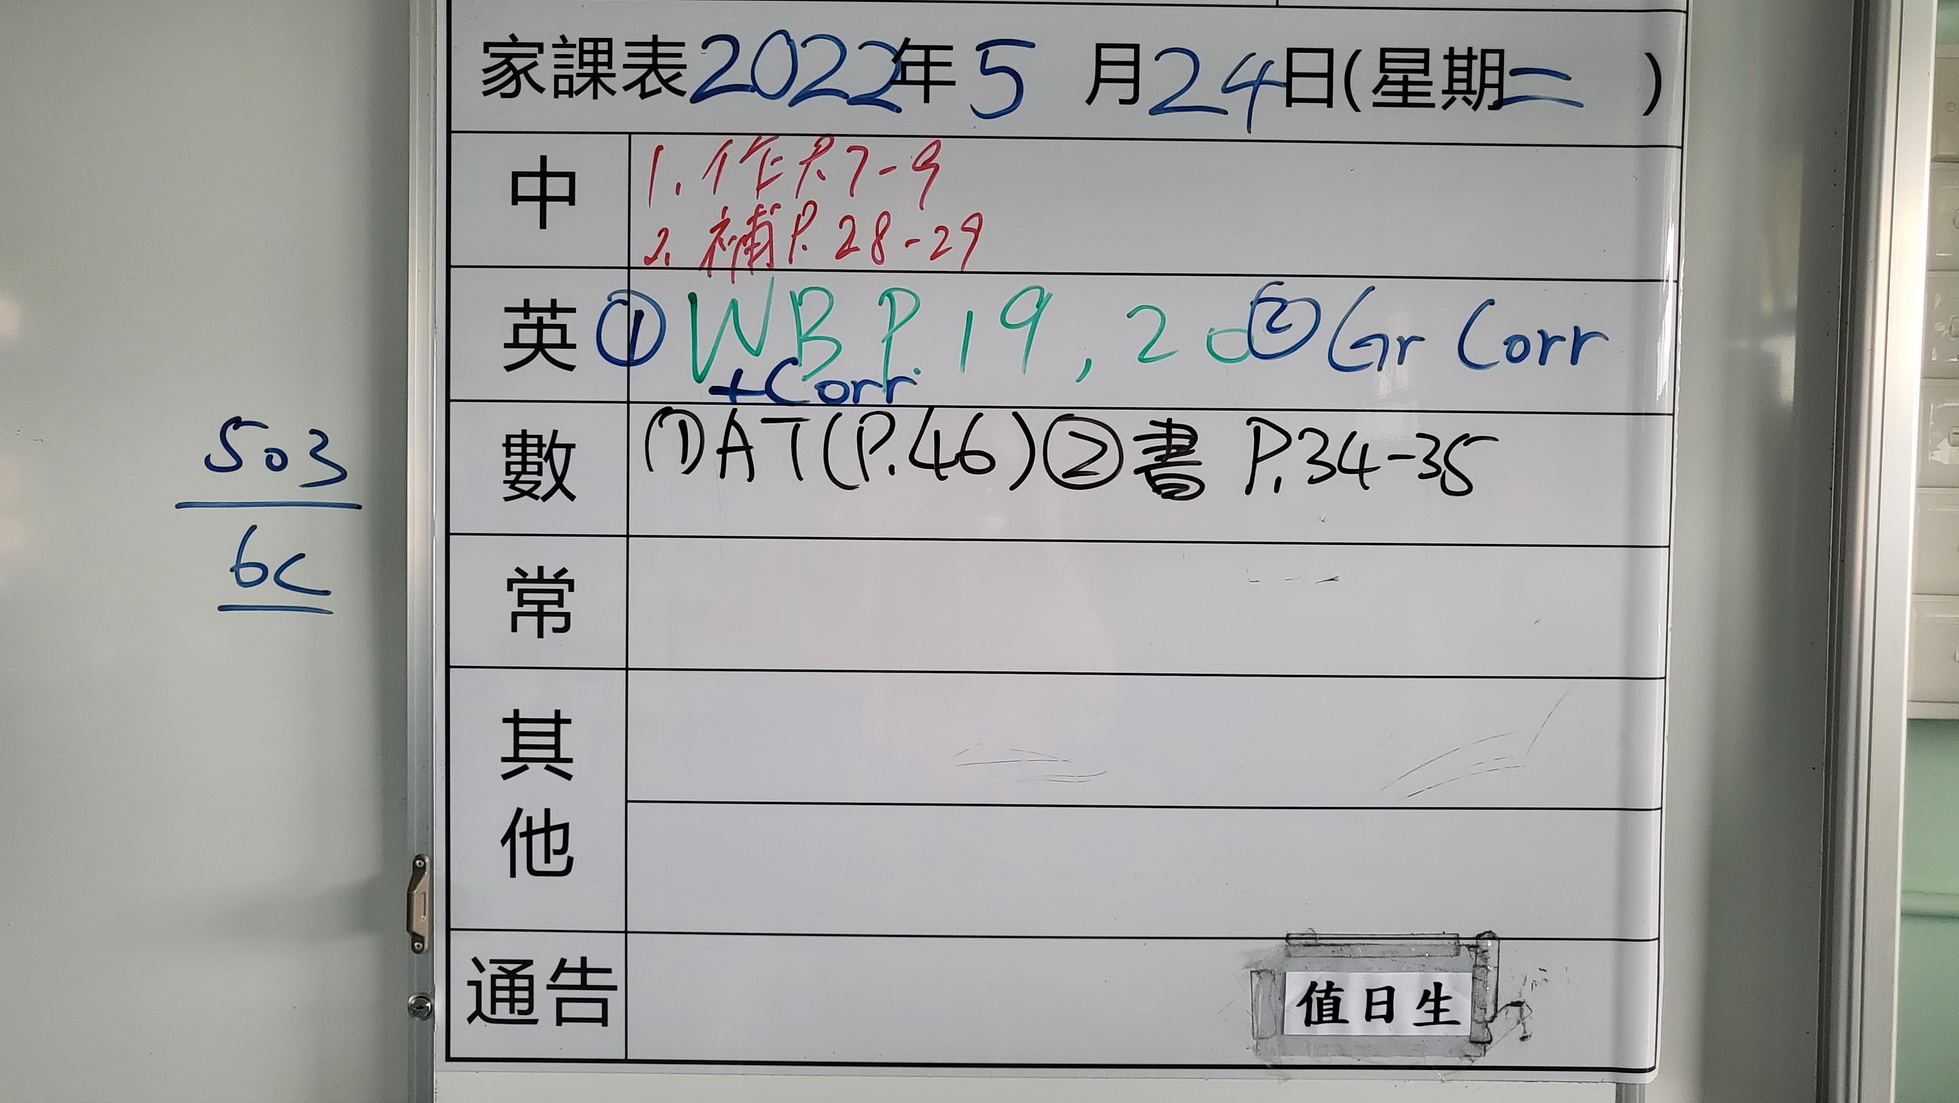 家課表2022年5月24日(星期二)
中
1. 作 P.7-9
2. 補 P.28-29
英
① WB P.19, 20 ② Gr Corr
+Corr
數
① AT (P.46) ② 書 P.34-35
503
6C
常
其他
通告
值日生